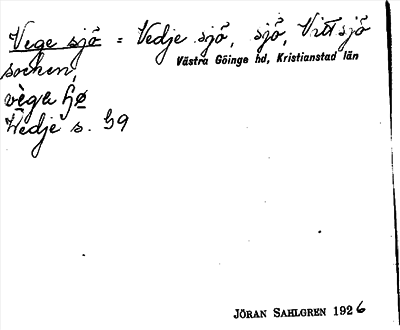 Vege sjö = Vedje sjö, sjö, Vittsjö
socken,
Västra Göinge hd, Kristianstad län
vega
Vedje s. 59
JÖRAN SAHLGREN 1926